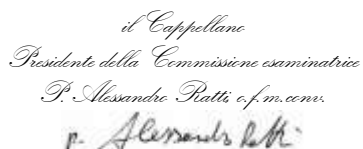 il Cappellano
Presidente della Commissione esaminatrice
P. Alessandro Ratti, o.f.m.conv.
p. Alessandro Ratti